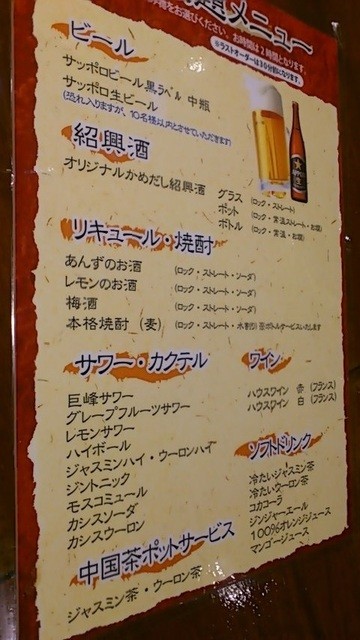 題メニュー
お選びください。お時間は2時間となります。
※ラストオーダーは30分前になります。
ビール
サッポロビール黒ラベル 中瓶
サッポロ生ビール
(恐れ入りますが、10名様以内とさせていただきます)
紹興酒
オリジナルかめだし紹興酒 グラス (ロック・ストレート)
ポット (ロック・常温ストレート・お燗)
ボトル (ロック・常温・お燗)
リキュール・焼酎
あんずのお酒 (ロック・ストレート・ソーダ)
レモンのお酒 (ロック・ストレート・ソーダ)
梅酒 (ロック・ストレート・ソーダ)
本格焼酎 (麦) (ロック・ストレート・水割り) ※ボトルサービスいたします
サワー・カクテル
巨峰サワー
グレープフルーツサワー
レモンサワー
ハイボール
ジャスミンハイ・ウーロンハイ
ジントニック
モスコミュール
カシスソーダ
カシスウーロン
中国茶ポットサービス
ジャスミン茶・ウーロン茶
ワイン
ハウスワイン 赤 (フランス)
ハウスワイン 白 (フランス)
ソフトドリンク
冷たいジャスミン茶
冷たいウーロン茶
コカコーラ
ジンジャーエール
100%オレンジジュース
マンゴージュース